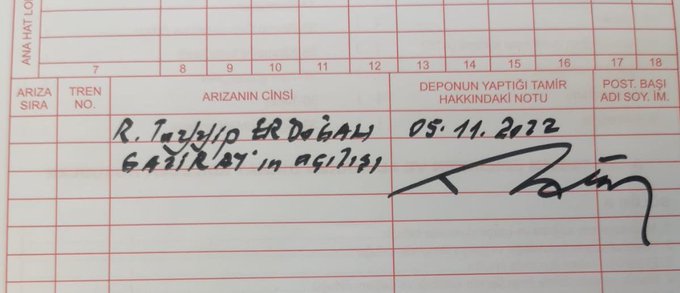 ANA HAT LO
7 8 9 10 11 12 13 14 15 16 17 18
ARIZA SIRA
TREN NO.
ARIZANIN CİNSİ
DEPONUN YAPTIĞI TAMİR HAKKINDAKİ NOTU
POST. BAŞI ADI SOY. İM.
R. Tayyip ERDOĞAN 05.11.2022
GAZİRAY'ın açılışı